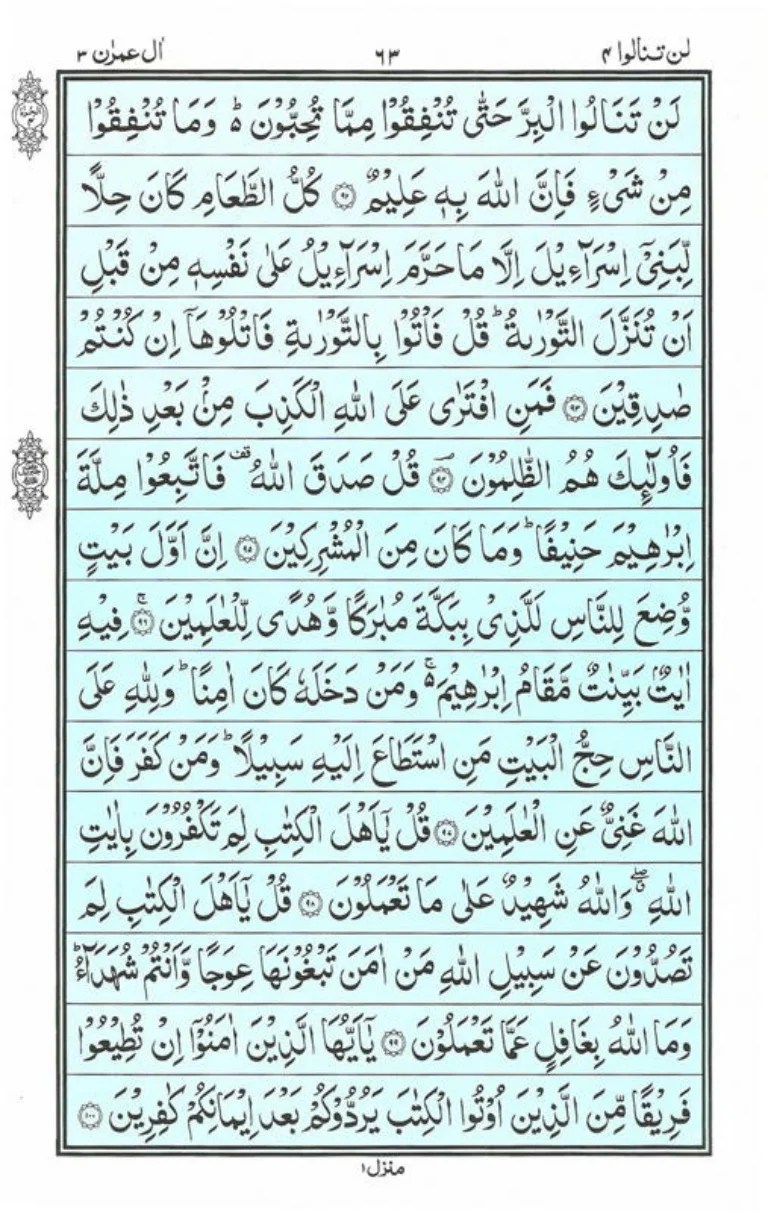 لن تنالوا ۴ ۶۳ اٰل عمرٰن ۳
لَنْ تَنَالُوا الْبِرَّ حَتّٰى تُنْفِقُوْا مِمَّا تُحِبُّوْنَ ؕ۬ وَمَا تُنْفِقُوْا
مِنْ شَىْءٍ فَاِنَّ اللّٰهَ بِهٖ عَلِيْمٌ ۝۹۲ كُلُّ الطَّعَامِ كَانَ حِلًّا
لِّبَنِىْٓ اِسْرَآءِيْلَ اِلَّا مَا حَرَّمَ اِسْرَآءِيْلُ عَلٰى نَفْسِهٖ مِنْ قَبْلِ
اَنْ تُنَزَّلَ التَّوْرٰىةُ ؕ قُلْ فَاْتُوْا بِالتَّوْرٰىةِ فَاتْلُوْهَاۤ اِنْ كُنْتُمْ
صٰدِقِيْنَ ۝۹۳ فَمَنِ افْتَرٰى عَلَى اللّٰهِ الْكَذِبَ مِنْۢ بَعْدِ ذٰلِكَ
فَاُولٰٓئِكَ هُمُ الظّٰلِمُوْنَ ۝۹۴ قُلْ صَدَقَ اللّٰهُ قف فَاتَّبِعُوْا مِلَّةَ
اِبْرٰهِيْمَ حَنِيْفًا ؕ وَمَا كَانَ مِنَ الْمُشْرِكِيْنَ ۝۹۵ اِنَّ اَوَّلَ بَيْتٍ
وُّضِعَ لِلنَّاسِ لَلَّذِىْ بِبَكَّةَ مُبٰرَكًا وَّهُدًى لِّلْعٰلَمِيْنَ ۝۹۶ۚ فِيْهِ
اٰيٰتٌۢ بَيِّنٰتٌ مَّقَامُ اِبْرٰهِيْمَ ۚ۬ وَمَنْ دَخَلَهٗ كَانَ اٰمِنًا ؕ وَلِلّٰهِ عَلَى
النَّاسِ حِجُّ الْبَيْتِ مَنِ اسْتَطَاعَ اِلَيْهِ سَبِيْلًا ؕ وَمَنْ كَفَرَ فَاِنَّ
اللّٰهَ غَنِىٌّ عَنِ الْعٰلَمِيْنَ ۝۹۷ قُلْ يٰۤاَهْلَ الْكِتٰبِ لِمَ تَكْفُرُوْنَ بِاٰيٰتِ
اللّٰهِ ۖۗ وَاللّٰهُ شَهِيْدٌ عَلٰى مَا تَعْمَلُوْنَ ۝۹۸ قُلْ يٰۤاَهْلَ الْكِتٰبِ لِمَ
تَصُدُّوْنَ عَنْ سَبِيْلِ اللّٰهِ مَنْ اٰمَنَ تَبْغُوْنَهَا عِوَجًا وَّاَنْتُمْ شُهَدَآءُ ؕ
وَمَا اللّٰهُ بِغَافِلٍ عَمَّا تَعْمَلُوْنَ ۝۹۹ يٰۤاَيُّهَا الَّذِيْنَ اٰمَنُوْۤا اِنْ تُطِيْعُوْا
فَرِيْقًا مِّنَ الَّذِيْنَ اُوْتُوا الْكِتٰبَ يَرُدُّوْكُمْ بَعْدَ اِيْمَانِكُمْ كٰفِرِيْنَ ۝۱۰۰
منزل۱